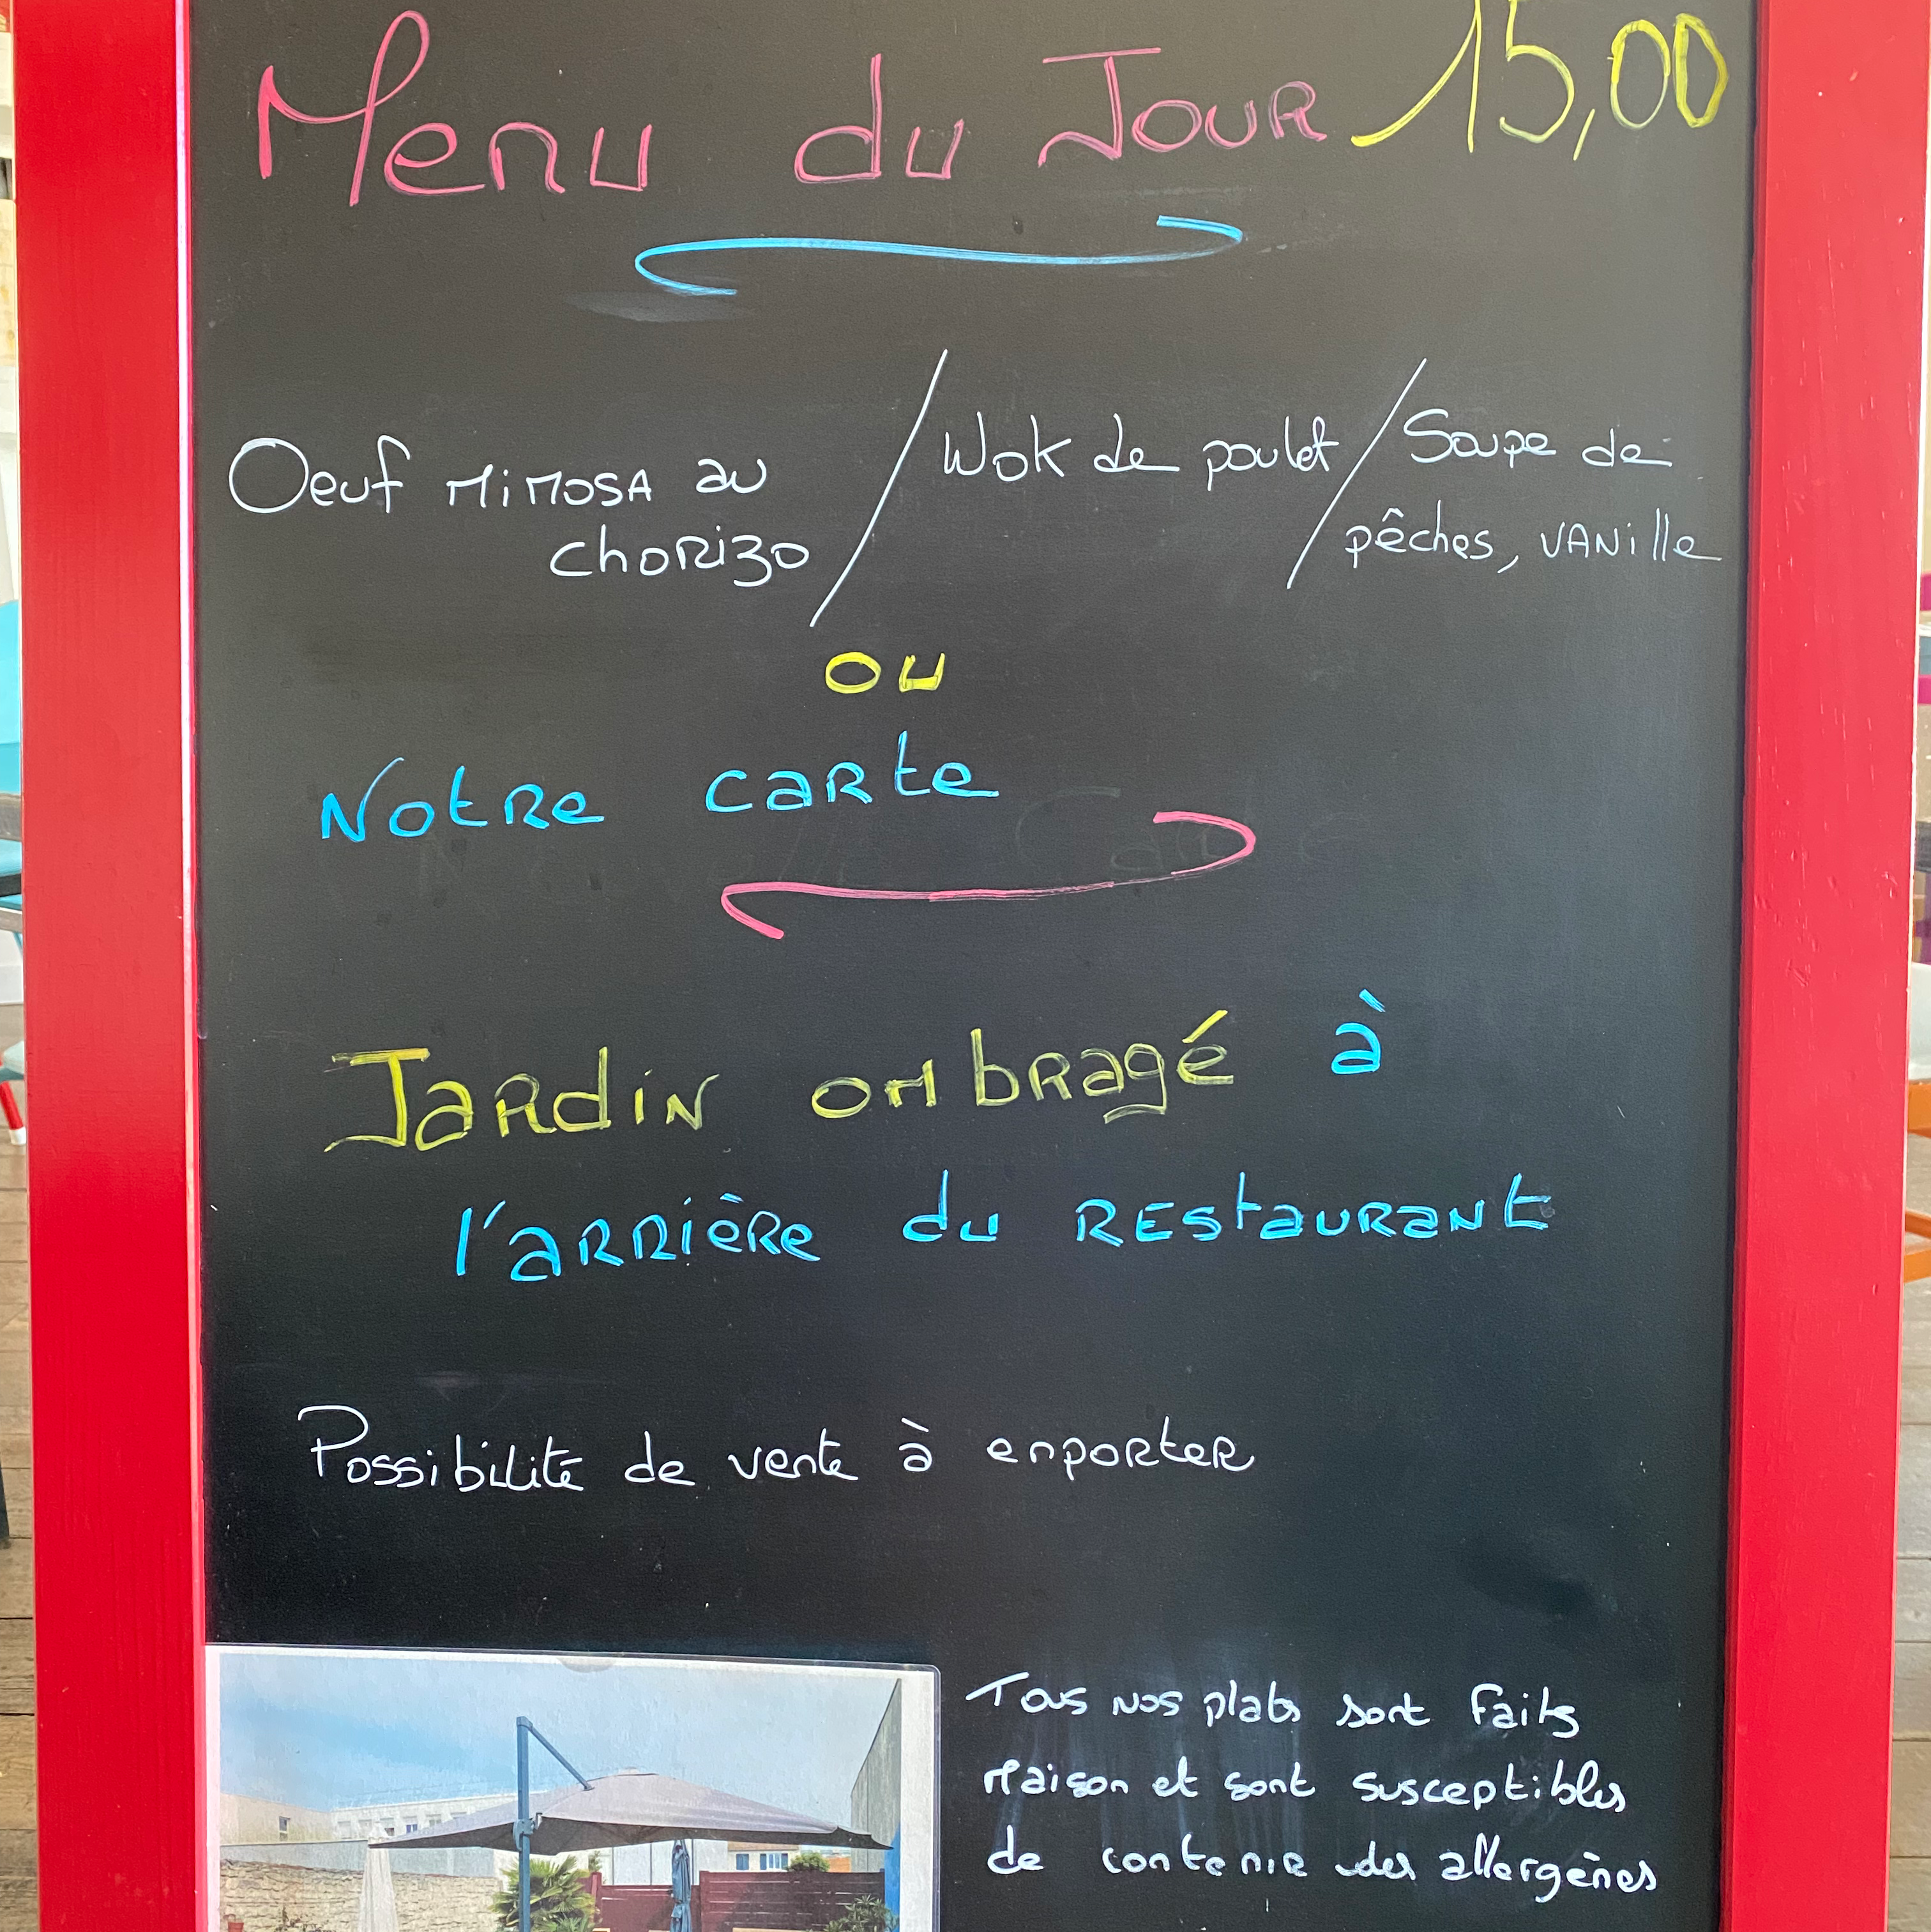 Menu du Jour 15,00
Oeuf mimosa au / Wok de poulet / Soupe de
chorizo
pêches, vanille
ou
Notre carte
Jardin ombragé à
l'arrière du restaurant
Possibilité de vente à enporter
Tous nos plats sont faits
maison et sont susceptibles
de contenir des allergènes